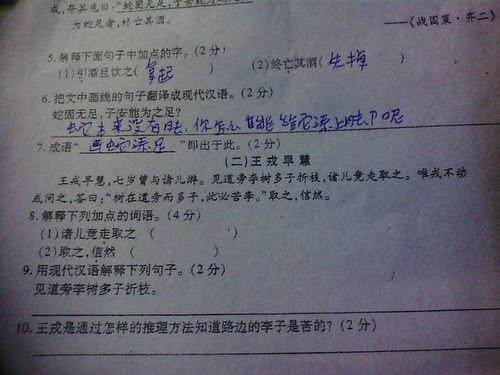 成,夺其卮曰:“蛇固无足,子安能为之
为蛇足者,终亡其酒。
——《战国策·齐二》
5.解释下面句子中加点的字。(2分)
(1)引酒且饮之(拿起 ) (2)终亡其酒(失掉 )
6.把文中画线的句子翻译成现代汉语。(2分)
蛇固无足,子安能为之足?
蛇本来没有脚,你怎么能给它添上脚呢
7.成语“画蛇添足”即出于此。(2分)
(二)王戎早慧
王戎早慧,七岁曾与诸儿游。见道旁李树多子折枝,诸儿竞走取之。唯戎不动
或问之,答曰:“树在道旁而多子,此必苦李。”取之,信然。
8.解释下列加点的词语。(4分)
(1)诸儿竞走取之 ( )
(2)取之,信然 ( )
9.用现代汉语解释下列句子。(2分)
见道旁李树多子折枝。
10.王戎是通过怎样的推理方法知道路边的李子是苦的?(2分)